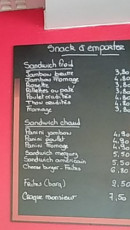 Snack à emporter
Sandwich froid
Jambon beurre 3,80
Jambon fromage 4,80
Rosette 3,80
Rillettes ou paté 3,80
Poulet crudités 4,80
Thon crudités 4,80
Fromage 3,80
Sandwich chaud
Panini jambon 4,80
Panini poulet 4,80
Panini fromage 4,80
Sandwich merguez 5,50
Sandwich américain 5,50
Cheese burger - Frites 6,80
Frites (barq) 2,50
Croque monsieur 7,50